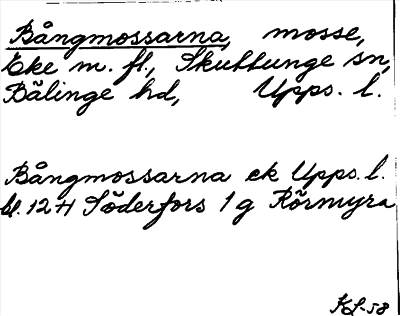 Bångmossarna, mosse,
Eke m. fl., Skuttunge sn,
Bälinge hd, Upps. l.
Bångmossarna ek Upps. l.
bl. 12 H Söderfors 1 g Rörmyra
KL-58